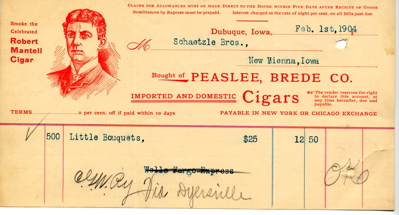 CLAIMS FOR ALLOWANCES MUST BE MADE DIRECT TO THE HOUSE WITHIN FIVE DAYS AFTER RECEIPT OF GOODS
Remittances by Express must be prepaid. Interest charged at the rate of eight per cent. on all bills past due
Smoke the
Celebrated
Robert
Mantell
Cigar
Dubuque, Iowa, Feb. 1st, 1904
M Schaetzle Bros.,
New Vienna, Iowa
Bought of PEASLEE, BREDE CO.
IMPORTED AND DOMESTIC Cigars
The vender reserves the right
to declare this account, at
any time hereafter, due and
payable.
TERMS per cent. off if paid within 10 days PAYABLE IN NEW YORK OR CHICAGO EXCHANGE
500 Little Bouquets, $25 12 50
Wells Fargo Express
Ry Via Dyersville
OK